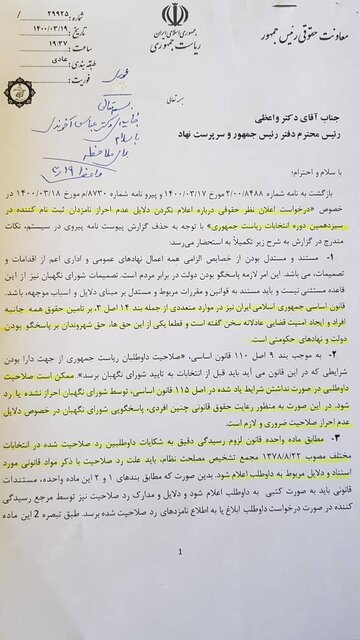 شماره: ۲۹۹۲۵
تاریخ: ۱۴۰۰/۰۳/۱۹
ساعت: ۱۹:۳۷
طبقه بندی: عادی
فوریت:
جمهوری اسلامی ایران
ریاست جمهوری
معاونت حقوقی رئیس جمهور
بسمه تعالی
فوری
بسمه تعالی
جناب آقای دکتر عباس آخوندی
با سلام
برای ملاحظه
واعظی
جناب آقای دکتر واعظی
رئیس محترم دفتر رئیس جمهور و سرپرست نهاد
با سلام و احترام؛
بازگشت به نامه شماره ۲/۰۰/۸۴۸۸ مورخ ۱۴۰۰/۰۳/۱۷ و پیرو نامه شماره ۸۷۳۰/م مورخ ۱۴۰۰/۰۳/۱۸ در
خصوص «درخواست اعلان نظر حقوقی درباره اعلام نکردن دلایل عدم احراز نامزدان ثبت نام کننده در
سیزدهمین دوره انتخابات ریاست جمهوری» با توجه به حذف گزارش پیوست نامه پیروی در سیستم، نکات
مندرج در گزارش به شرح زیر تکمیلاً به استحضار می‌رسد:
۱- مستند و مستدل بودن از خصایص الزامی همه اعمال نهادهای عمومی و اداری اعم از اقدامات و
تصمیمات، می‌باشد. این امر لازمه پاسخگو بودن دولت در برابر مردم است. تصمیمات شورای نگهبان نیز از این
قاعده مستثنی نیست و باید مستند به قوانین و مقررات مربوط و مستدل بر مبنای دلایل و اسباب موجهه، باشد.
قانون اساسی جمهوری اسلامی ایران نیز در موارد متعددی از جمله بند ۱۴ اصل ۳، بر تامین حقوق همه جانبه
افراد و ایجاد امنیت قضایی عادلانه سخن گفته است و قطعا یکی از این حق ها، حق شهروندان بر پاسخگو بودن
دولت و نهادهای حکومتی است.
۲- به موجب بند ۹ اصل ۱۱۰ قانون اساسی، «صلاحیت داوطلبان ریاست جمهوری از جهت دارا بودن
شرایطی که در این قانون می آید باید قبل از انتخابات به تایید شورای نگهبان برسد». ممکن است صلاحیت
داوطلبی در صورت نداشتن شرایط یاد شده در اصل ۱۱۵ قانون اساسی، توسط شورای نگهبان احراز نشده یا رد
شود. در این صورت به منظور رعایت حقوق قانونی چنین افردی، پاسخگویی شورای نگهبان در خصوص دلایل
عدم احراز صلاحیت ضروری و لازم است.
۳- مطابق ماده واحده قانون لزوم رسیدگی دقیق به شکایات داوطلبین رد صلاحیت شده در انتخابات
مختلف مصوب ۱۳۷۸/۸/۲۲ مجمع تشخیص مصلحت نظام، باید علت رد صلاحیت با ذکر مواد قانونی مورد
استناد و دلایل مربوط به داوطلب اعلام شود. بدین صورت که مطابق بندهای ۱ و ۲ این ماده واحده، مستندات
قانونی باید به صورت کتبی به داوطلب اعلام شود و دلایل و مدارک رد صلاحیت نیز توسط مرجع رسیدگی
کننده در صورت درخواست داوطلب ابلاغ یا به اطلاع نامزدهای رد صلاحیت شده برسد. طبق تبصره 2 این ماده
1